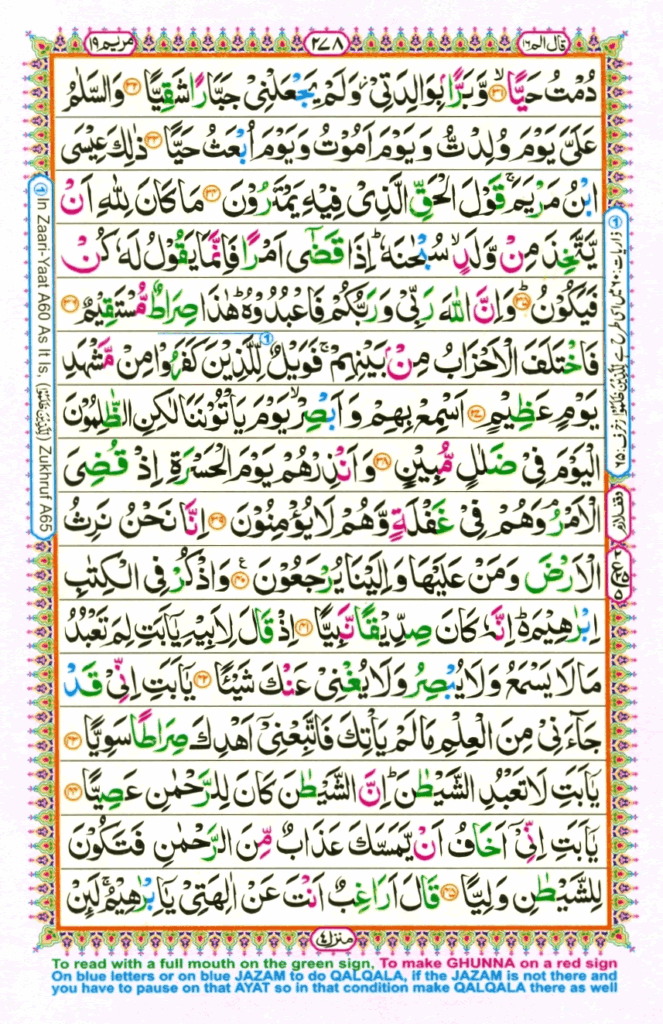 قال الم ١٦
٢٧٨
مريم ١٩
دُمْتُ حَيًّا ﴿٣١﴾ وَّبَرًّۢا بِوَالِدَتِیْ وَلَمْ یَجْعَلْنِیْ جَبَّارًا شَقِیًّا ﴿٣٢﴾ وَالسَّلٰمُ
عَلَیَّ یَوْمَ وُلِدْتُّ وَیَوْمَ اَمُوْتُ وَیَوْمَ اُبْعَثُ حَیًّا ﴿٣٣﴾ ذٰلِكَ عِیْسَی
ابْنُ مَرْیَمَ ۚ قَوْلَ الْحَقِّ الَّذِیْ فِیْهِ یَمْتَرُوْنَ ﴿٣٤﴾ مَا كَانَ لِلّٰهِ اَنْ
یَّتَّخِذَ مِنْ وَّلَدٍ ۙ سُبْحٰنَهٗ ؕ اِذَا قَضٰۤی اَمْرًا فَاِنَّمَا یَقُوْلُ لَهٗ كُنْ
فَیَكُوْنُ ﴿٣٥﴾ وَاِنَّ اللّٰهَ رَبِّیْ وَرَبُّكُمْ فَاعْبُدُوْهُ ؕ هٰذَا صِرَاطٌ مُّسْتَقِیْمٌ ﴿٣٦﴾
فَاخْتَلَفَ الْاَحْزَابُ مِنْۢ بَیْنِهِمْ ۚ فَوَیْلٌ لِّلَّذِیْنَ كَفَرُوْا مِنْ مَّشْهَدِ
یَوْمٍ عَظِیْمٍ ﴿٣٧﴾ اَسْمِعْ بِهِمْ وَاَبْصِرْ ۙ یَوْمَ یَاْتُوْنَنَا لٰكِنِ الظّٰلِمُوْنَ
الْیَوْمَ فِیْ ضَلٰلٍ مُّبِیْنٍ ﴿٣٨﴾ وَاَنْذِرْهُمْ یَوْمَ الْحَسْرَةِ اِذْ قُضِیَ
الْاَمْرُ ۘ وَهُمْ فِیْ غَفْلَةٍ وَّهُمْ لَا یُؤْمِنُوْنَ ﴿٣٩﴾ اِنَّا نَحْنُ نَرِثُ
الْاَرْضَ وَمَنْ عَلَیْهَا وَاِلَیْنَا یُرْجَعُوْنَ ﴿٤٠﴾ وَاذْكُرْ فِی الْكِتٰبِ
اِبْرٰهِیْمَ ؕ۬ اِنَّهٗ كَانَ صِدِّیْقًا نَّبِیًّا ﴿٤١﴾ اِذْ قَالَ لِاَبِیْهِ یٰۤاَبَتِ لِمَ تَعْبُدُ
مَا لَا یَسْمَعُ وَلَا یُبْصِرُ وَلَا یُغْنِیْ عَنْكَ شَیْئًا ﴿٤٢﴾ یٰۤاَبَتِ اِنِّیْ قَدْ
جَآءَنِیْ مِنَ الْعِلْمِ مَا لَمْ یَاْتِكَ فَاتَّبِعْنِیْۤ اَهْدِكَ صِرَاطًا سَوِیًّا ﴿٤٣﴾
یٰۤاَبَتِ لَا تَعْبُدِ الشَّیْطٰنَ ؕ اِنَّ الشَّیْطٰنَ كَانَ لِلرَّحْمٰنِ عَصِیًّا ﴿٤٤﴾
یٰۤاَبَتِ اِنِّیْۤ اَخَافُ اَنْ یَّمَسَّكَ عَذَابٌ مِّنَ الرَّحْمٰنِ فَتَكُوْنَ
لِلشَّیْطٰنِ وَلِیًّا ﴿٤٥﴾ قَالَ اَرَاغِبٌ اَنْتَ عَنْ اٰلِهَتِیْ یٰۤاِبْرٰهِیْمُ ۚ لَئِنْ
منزل ٤
① ذاریات: ٦٠ میں اسی طرح ہے لِلَّذِیْنَ ظَلَمُوْا زخرف: ٦٥
وقف لازم
① In Zaari-Yaat A60 As It Is, (لِلَّذِیْنَ ظَلَمُوْا) Zukhruf A65
To read with a full mouth on the green sign, To make GHUNNA on a red sign
On blue letters or on blue JAZAM to do QALQALA, if the JAZAM is not there and
you have to pause on that AYAT so in that condition make QALQALA there as well